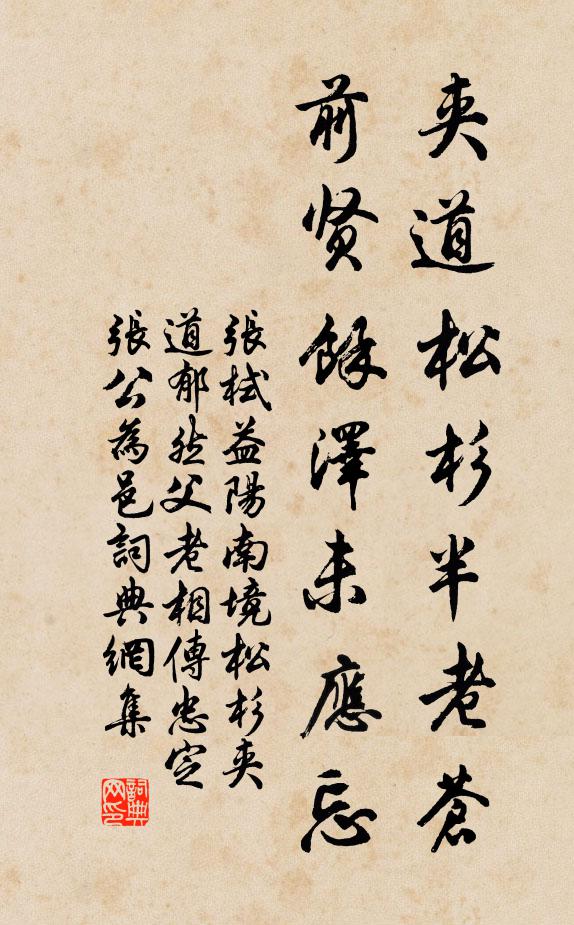 夹道松杉半老苍
前贤馀澤未應忘
張栻益陽南境松杉夹
道郁然父老相傳忠定
張公為邑詞典網集
詞典网印